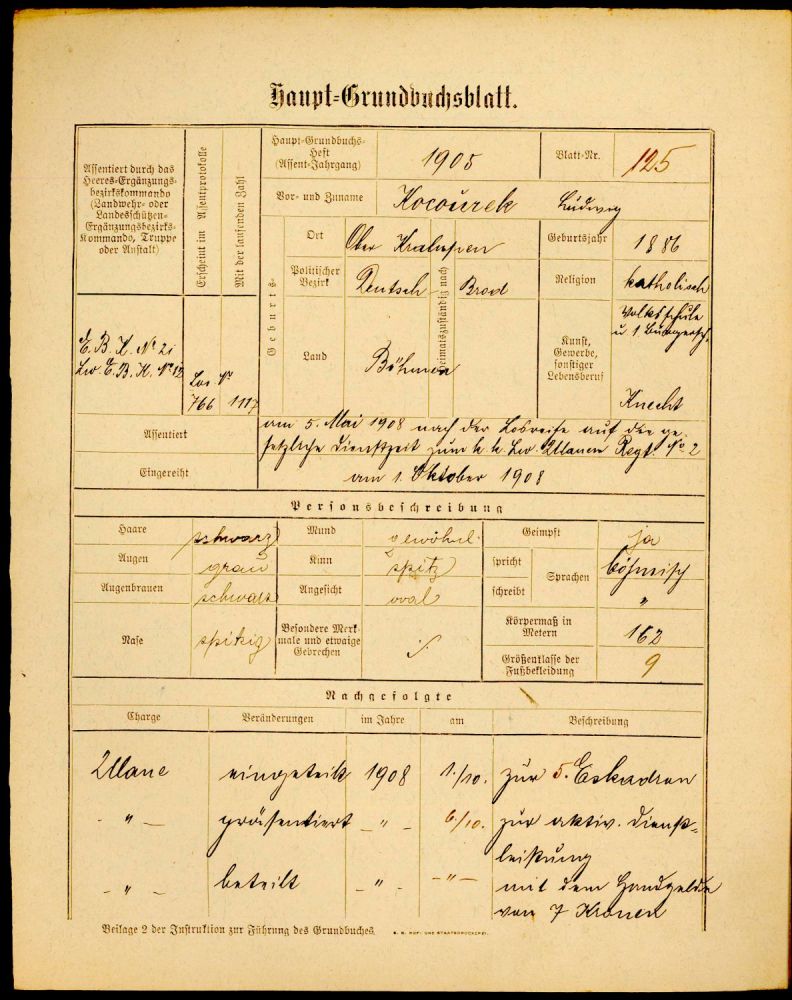 Haupt-Grundbuchsblatt.
Assentiert durch das
Heeres-Ergänzungs-
bezirkskommando
(Landwehr- oder
Landesschützen-
Ergänzungsbezirks-
Kommando, Truppe
oder Anstalt)
Erscheint im Assentprotokolle
Mit der laufenden Zahl
Haupt-Grundbuchs-
Heft
(Assent-Jahrgang)
1905
Blatt-Nr.
125
Vor- und Zuname
Kocoŭrek Lŭdwig
Geburts-
Ort
Ober
Geburtsjahr
1886
Politischer
Bezirk
Deutsch-Brod
Heimatszuständig nach
Religion
katholisch
Land
Böhmen
Kunst,
Gewerbe,
sonstiger
Lebensberuf
Volksschule
u 1. Bürgersch.
Knecht
E. B. K. Nº 21
Lw. E. B. K. Nº 12
Los Nº
766 1117
Assentiert
am 5. Mai 1908 nach der Losreihe auf die ge-
setzliche Dienstzeit zum k. k. Lw. Ulanen Regt. No 2
Eingereiht
am 1. Oktober 1908
Personsbeschreibung
Haare schwarz Mund gewöhnl. Geimpft ja
Augen graŭ Kinn spitz spricht Sprachen böhmisch
Augenbrauen schwarz Angesicht oval schreibt "
Nase spitzig Besondere Merk-
male und etwaige
Gebrechen ./.
Körpermaß in
Metern 162
Größenklasse der
Fußbekleidung 9
Nachgefolgte
Charge Veränderungen im Jahre am Beschreibung
Ulane eingeteilt 1908 1./10. zŭr 5. Eskadron
- " - präsentiert - " - 6/10. zŭr aktiv. Dienst-
leistung
- " - beteilt - " - - " - mit dem Handgelde
von 7 Kronen
Beilage 2 der Instruktion zur Führung des Grundbuches.
K. K. HOF- UND STAATSDRUCKEREI.